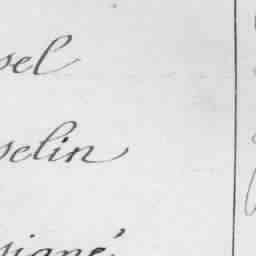 sel
selin
signé